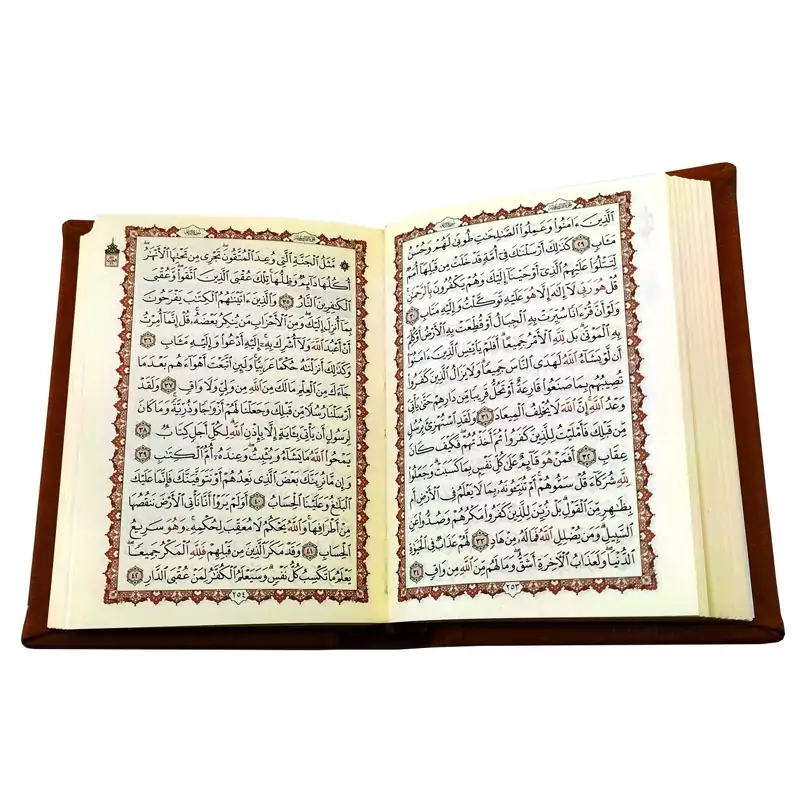 ٱلَّذِينَ ءَامَنُوا۟ وَعَمِلُوا۟ ٱلصَّـٰلِحَـٰتِ طُوبَىٰ لَهُمْ وَحُسْنُ
مَـَٔابٍ ٢٩ كَذَٰلِكَ أَرْسَلْنَـٰكَ فِىٓ أُمَّةٍ قَدْ خَلَتْ مِن قَبْلِهَآ أُمَمٌ
لِّتَتْلُوَا۟ عَلَيْهِمُ ٱلَّذِىٓ أَوْحَيْنَآ إِلَيْكَ وَهُمْ يَكْفُرُونَ بِٱلرَّحْمَـٰنِ ۚ
قُلْ هُوَ رَبِّى لَآ إِلَـٰهَ إِلَّا هُوَ عَلَيْهِ تَوَكَّلْتُ وَإِلَيْهِ مَتَابِ ٣٠
وَلَوْ أَنَّ قُرْءَانًا سُيِّرَتْ بِهِ ٱلْجِبَالُ أَوْ قُطِّعَتْ بِهِ ٱلْأَرْضُ أَوْ كُلِّمَ
بِهِ ٱلْمَوْتَىٰ ۗ بَل لِّلَّهِ ٱلْأَمْرُ جَمِيعًا ۗ أَفَلَمْ يَا۟يْـَٔسِ ٱلَّذِينَ ءَامَنُوٓا۟
أَن لَّوْ يَشَآءُ ٱللَّهُ لَهَدَى ٱلنَّاسَ جَمِيعًا ۗ وَلَا يَزَالُ ٱلَّذِينَ كَفَرُوا۟
تُصِيبُهُم بِمَا صَنَعُوا۟ قَارِعَةٌ أَوْ تَحُلُّ قَرِيبًا مِّن دَارِهِمْ حَتَّىٰ يَأْتِىَ
وَعْدُ ٱللَّهِ ۚ إِنَّ ٱللَّهَ لَا يُخْلِفُ ٱلْمِيعَادَ ٣١ وَلَقَدِ ٱسْتُهْزِئَ بِرُسُلٍ
مِّن قَبْلِكَ فَأَمْلَيْتُ لِلَّذِينَ كَفَرُوا۟ ثُمَّ أَخَذْتُهُمْ ۖ فَكَيْفَ كَانَ
عِقَابِ ٣٢ أَفَمَنْ هُوَ قَآئِمٌ عَلَىٰ كُلِّ نَفْسٍۭ بِمَا كَسَبَتْ ۗ وَجَعَلُوا۟
لِلَّهِ شُرَكَآءَ قُلْ سَمُّوهُمْ ۚ أَمْ تُنَبِّـُٔونَهُۥ بِمَا لَا يَعْلَمُ فِى ٱلْأَرْضِ أَم
بِظَـٰهِرٍ مِّنَ ٱلْقَوْلِ ۗ بَلْ زُيِّنَ لِلَّذِينَ كَفَرُوا۟ مَكْرُهُمْ وَصُدُّوا۟ عَنِ
ٱلسَّبِيلِ ۗ وَمَن يُضْلِلِ ٱللَّهُ فَمَا لَهُۥ مِنْ هَادٍ ٣٣ لَّهُمْ عَذَابٌ فِى ٱلْحَيَوٰةِ
ٱلدُّنْيَا ۖ وَلَعَذَابُ ٱلْـَٔاخِرَةِ أَشَقُّ ۖ وَمَا لَهُم مِّنَ ٱللَّهِ مِن وَاقٍ ٣٤
٢٥٣
۞ مَّثَلُ ٱلْجَنَّةِ ٱلَّتِى وُعِدَ ٱلْمُتَّقُونَ ۖ تَجْرِى مِن تَحْتِهَا ٱلْأَنْهَـٰرُ ۖ
أُكُلُهَا دَآئِمٌ وَظِلُّهَا ۚ تِلْكَ عُقْبَى ٱلَّذِينَ ٱتَّقَوا۟ ۖ وَّعُقْبَى
ٱلْكَـٰفِرِينَ ٱلنَّارُ ٣٥ وَٱلَّذِينَ ءَاتَيْنَـٰهُمُ ٱلْكِتَـٰبَ يَفْرَحُونَ
بِمَآ أُنزِلَ إِلَيْكَ ۖ وَمِنَ ٱلْأَحْزَابِ مَن يُنكِرُ بَعْضَهُۥ ۚ قُلْ إِنَّمَآ أُمِرْتُ
أَنْ أَعْبُدَ ٱللَّهَ وَلَآ أُشْرِكَ بِهِۦٓ ۚ إِلَيْهِ أَدْعُوا۟ وَإِلَيْهِ مَـَٔابِ ٣٦
وَكَذَٰلِكَ أَنزَلْنَـٰهُ حُكْمًا عَرَبِيًّا ۚ وَلَئِنِ ٱتَّبَعْتَ أَهْوَآءَهُم بَعْدَ مَا
جَآءَكَ مِنَ ٱلْعِلْمِ مَا لَكَ مِنَ ٱللَّهِ مِن وَلِىٍّ وَلَا وَاقٍ ٣٧ وَلَقَدْ
أَرْسَلْنَا رُسُلًا مِّن قَبْلِكَ وَجَعَلْنَا لَهُمْ أَزْوَٰجًا وَذُرِّيَّةً ۚ وَمَا كَانَ
لِرَسُولٍ أَن يَأْتِىَ بِـَٔايَةٍ إِلَّا بِإِذْنِ ٱللَّهِ ۗ لِكُلِّ أَجَلٍ كِتَابٌ ٣٨
يَمْحُوا۟ ٱللَّهُ مَا يَشَآءُ وَيُثْبِتُ ۖ وَعِندَهُۥٓ أُمُّ ٱلْكِتَـٰبِ ٣٩
وَإِن مَّا نُرِيَنَّكَ بَعْضَ ٱلَّذِى نَعِدُهُمْ أَوْ نَتَوَفَّيَنَّكَ فَإِنَّمَا عَلَيْكَ
ٱلْبَلَـٰغُ وَعَلَيْنَا ٱلْحِسَابُ ٤٠ أَوَلَمْ يَرَوْا۟ أَنَّا نَأْتِى ٱلْأَرْضَ نَنقُصُهَا
مِنْ أَطْرَافِهَا ۚ وَٱللَّهُ يَحْكُمُ لَا مُعَقِّبَ لِحُكْمِهِۦ ۚ وَهُوَ سَرِيعُ
ٱلْحِسَابِ ٤١ وَقَدْ مَكَرَ ٱلَّذِينَ مِن قَبْلِهِمْ فَلِلَّهِ ٱلْمَكْرُ جَمِيعًا ۖ
يَعْلَمُ مَا تَكْسِبُ كُلُّ نَفْسٍ ۗ وَسَيَعْلَمُ ٱلْكُفَّـٰرُ لِمَنْ عُقْبَى ٱلدَّارِ ٤٢
٢٥٤